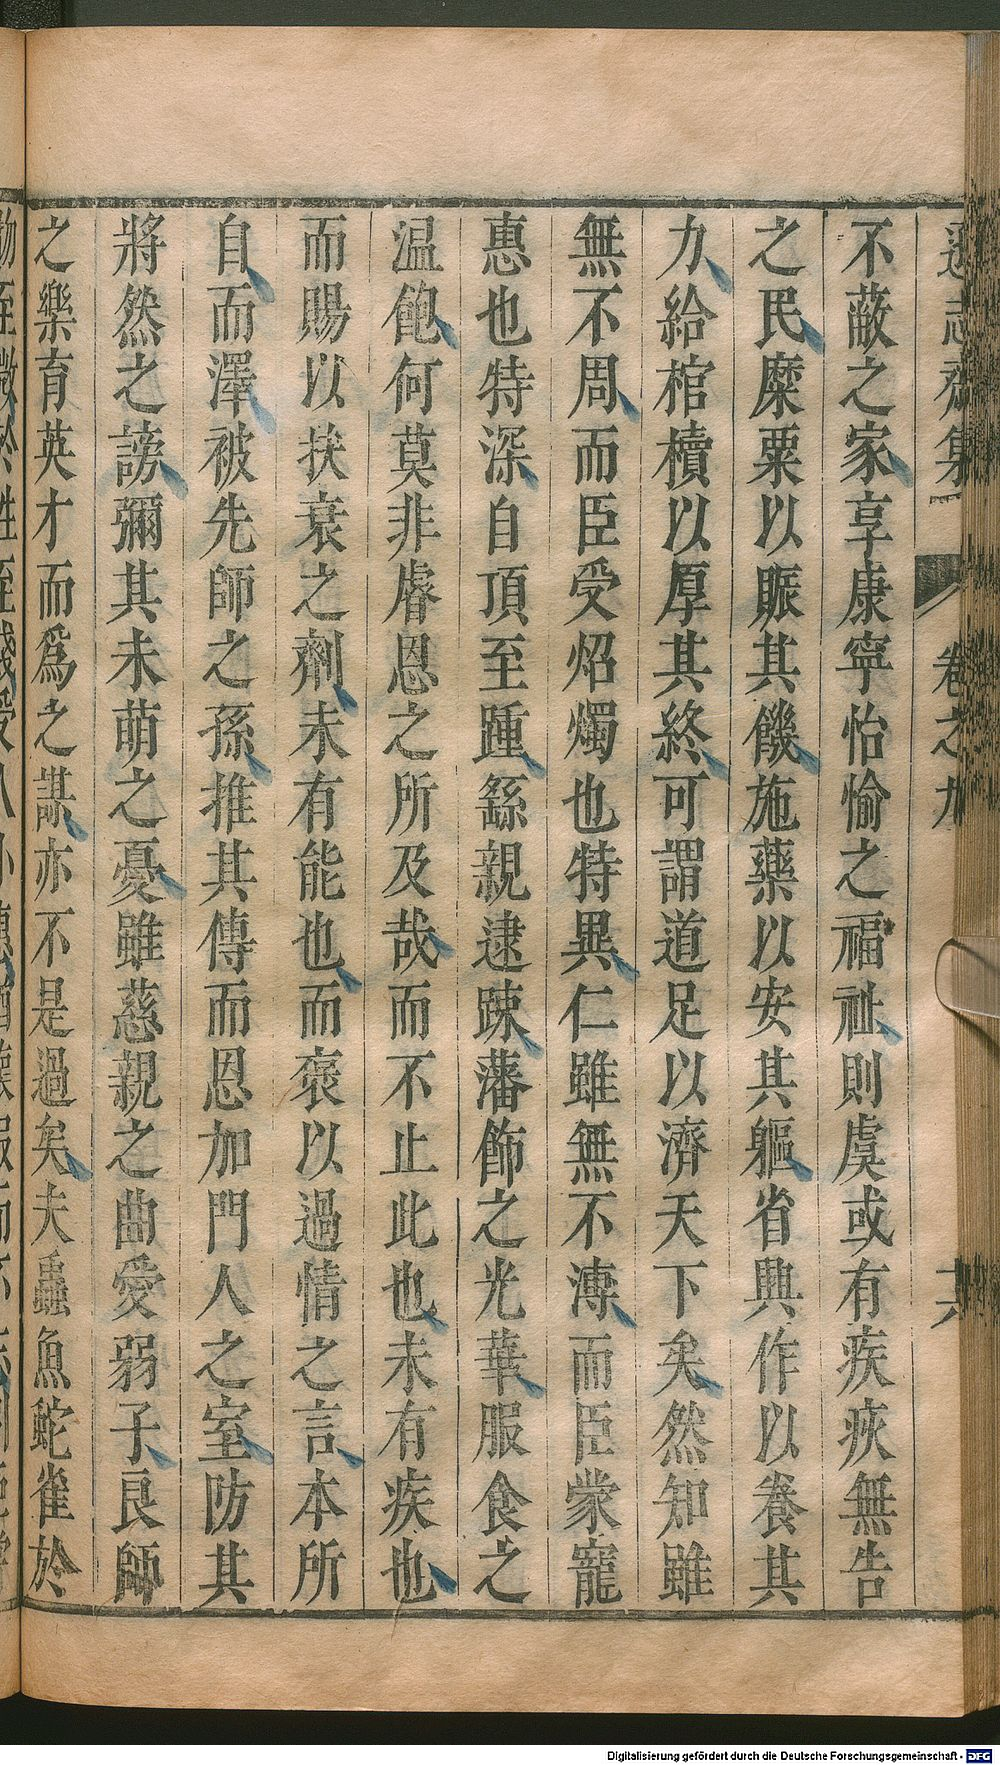 遜志齋集 卷之九 十六
不蔽之家享康寧怡愉之福祉則虞或有疾疢無告
之民糜粟以賑其饑施藥以安其軀省興作以養其
力給棺櫝以厚其終可謂道足以濟天下矣然知雖
無不周而臣受炤燭也特異仁雖無不溥而臣蒙寵
惠也特深自頂至踵繇親逮踈藩飾之光華服食之
温飽何莫非睿恩之所及哉而不止此也未有疾也
而賜以扶衰之劑未有能也而褒以過情之言本所
自而澤被先師之孫推其傳而恩加門人之室防其
將然之謗彌其未萌之憂雖慈親之曲愛弱子良師
之樂育英才而爲之謀亦不是過矣夫蟲魚鮀雀於
Digitalisierung gefördert durch die Deutsche Forschungsgemeinschaft - DFG